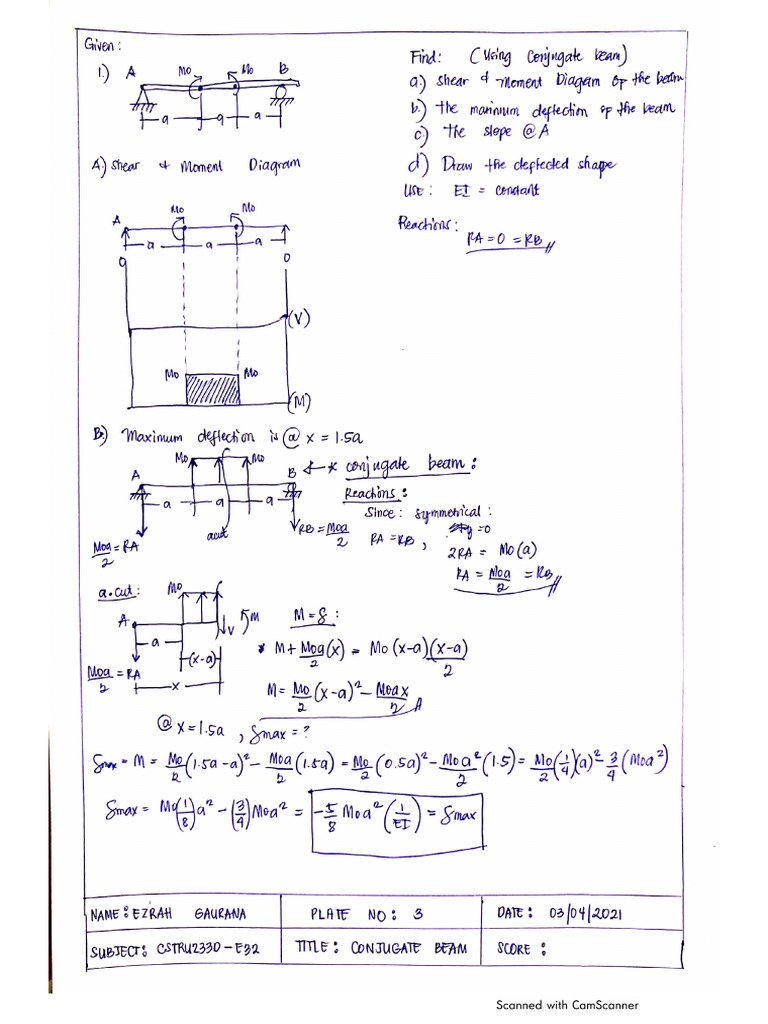 Given:
1.) A Mo Mo B
a a a
Find: (Using Conjugate beam)
a) Shear & Moment Diagram of the beam
b.) the maximum deflection of the beam
c) the slope @ A
d) Draw the deflected shape
Use: EI = constant
A.) Shear & Moment Diagram
Reactions:
RA = 0 = RB
Mo Mo
A
a a a
0 0
(V)
Mo Mo
(M)
B.) Maximum deflection is @ x = 1.5a
Mo Mo
A B ← * conjugate beam:
a a a
Reactions:
Since: symmetrical:
Moa/2 = RA
acut
RB = Moa/2
RA = RB,
=0
2RA = Mo(a)
RA = Moa/2 = RB
a.cut:
Mo
A
V M
a
(x-a)
Moa/2 = RA
x
M = δ:
* M + Moa/2 (x) = Mo (x-a) (x-a)/2
M = Mo/2 (x-a)² - Moax/2
@ x = 1.5a, δmax = ?
δmax = M = Mo/2 (1.5a - a)² - Moa/2 (1.5a) = Mo/2 (0.5a)² - Moa²/2 (1.5) = Mo/2 (1/4)(a)² - 3/4 (Moa²)
δmax = Mo(1/8)a² - (3/4)Moa² = -5/8 Moa² (1/EI) = δmax
NAME: EZRAH GAURANA
PLATE NO: 3
DATE: 03/04/2021
SUBJECT: CSTRU2330-E32
TITLE: CONJUGATE BEAM
SCORE:
Scanned with CamScanner